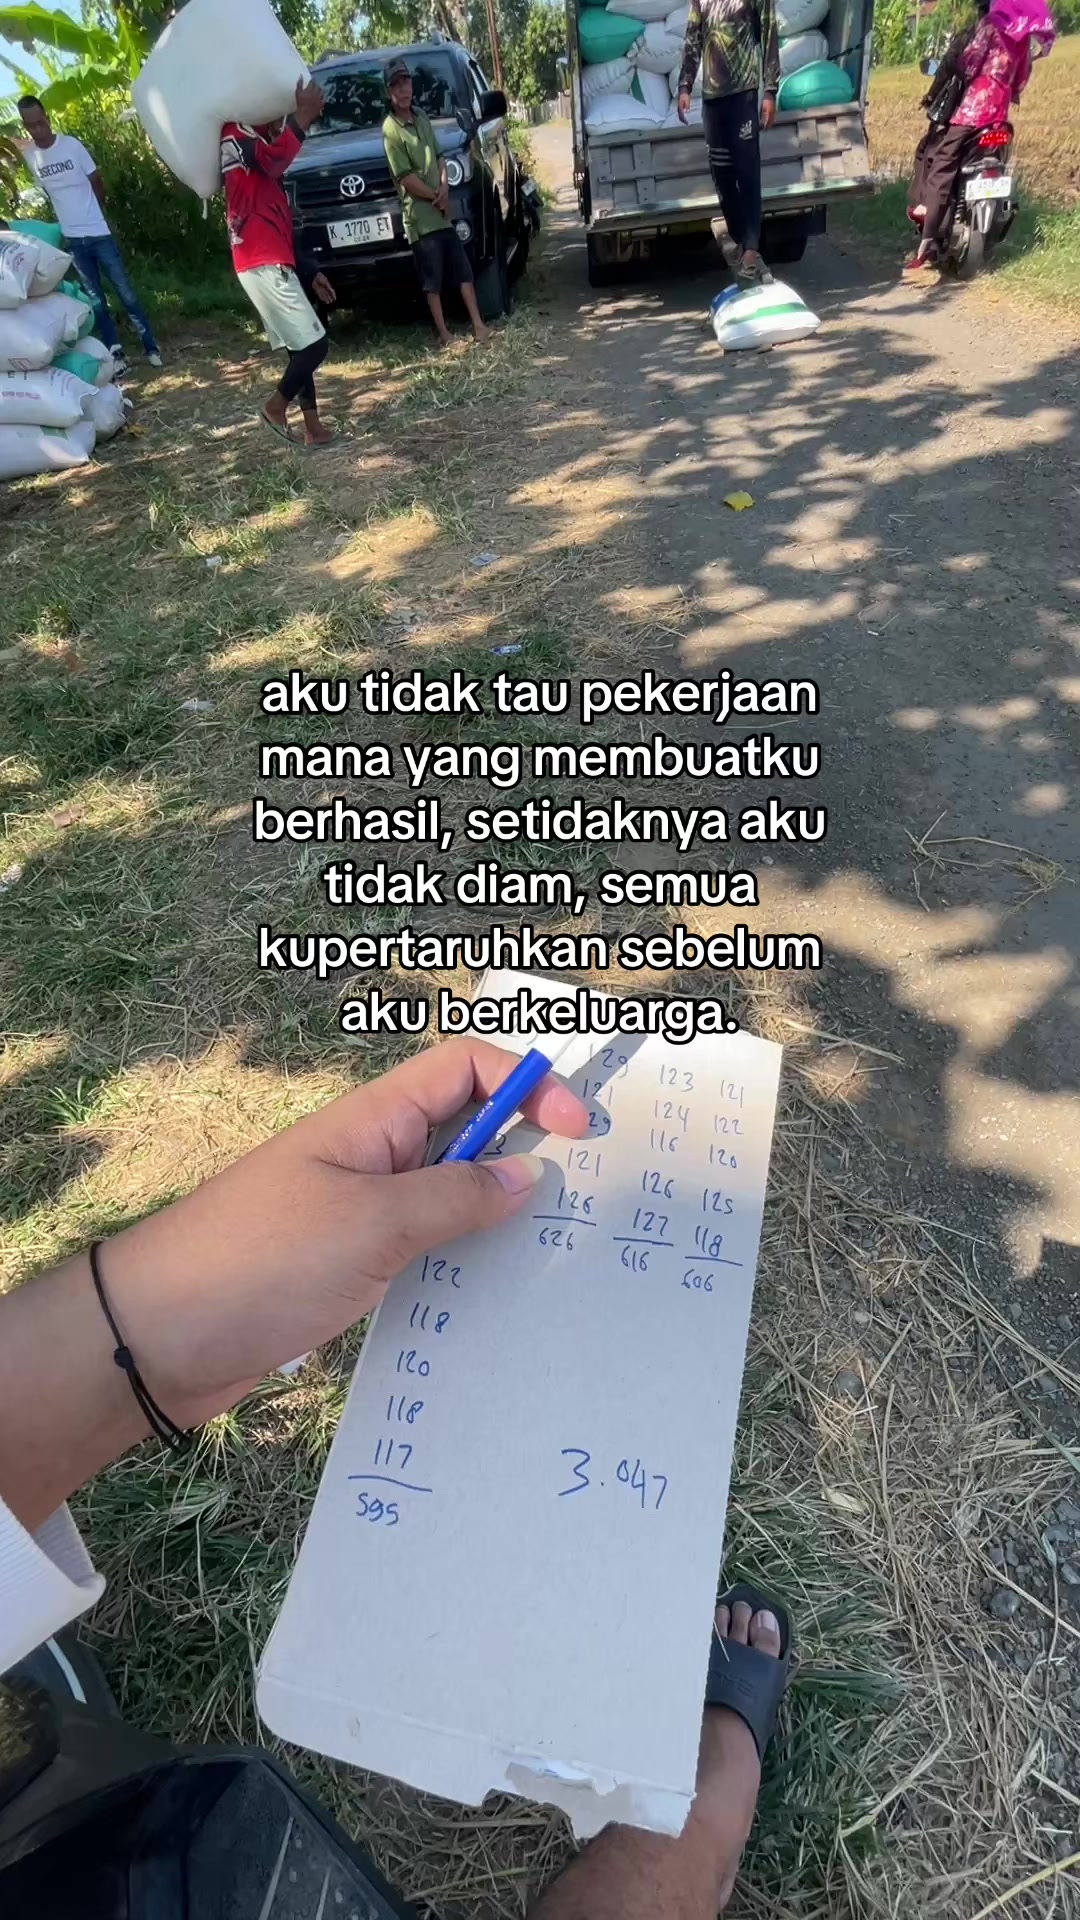 SECOND
K 1770 ET
aku tidak tau pekerjaan
mana yang membuatku
berhasil, setidaknya aku
tidak diam, semua
kupertaruhkan sebelum
aku berkeluarga.
129 123 121
121 124 122
29 116 120
121 126 125
126 127 118
626 616 606
3
122
118
120
118
117
595
3.047